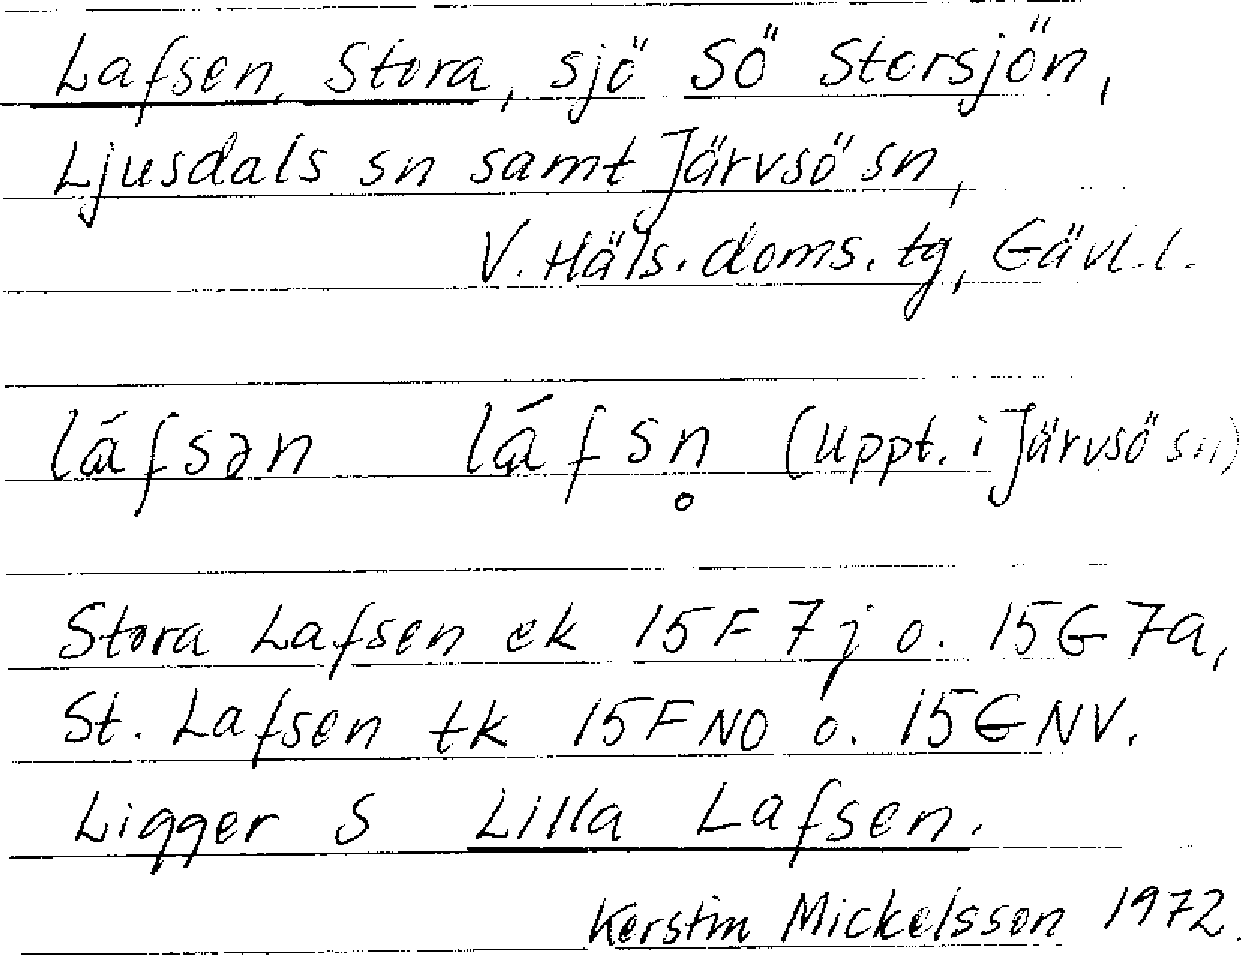 Lafsen, Stora, sjö SÖ Storsjön,
Ljusdals sn samt Järvsö sn,
V. Häls. doms. tg, Gävl. l.
láfsən láfsn̥ (Uppt. i Järvsö sn)
Stora Lafsen ek 15F 7j o. 15G 7a,
St. Lafsen tk 15F NO o. 15G NV.
Ligger S Lilla Lafsen.
Kerstin Mickelsson 1972.